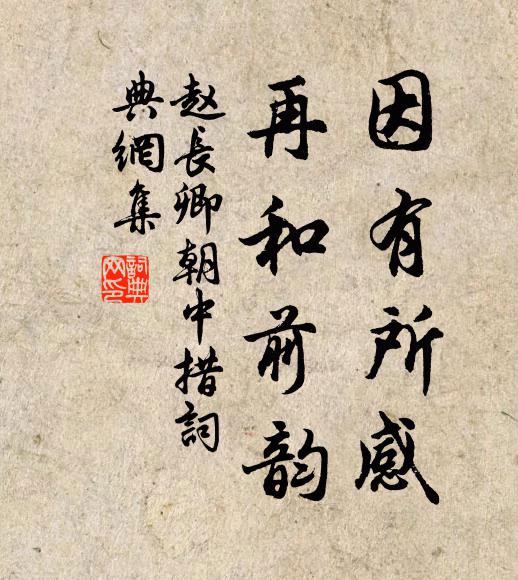 因有所感
再和前韵
赵長卿朝中措詞
典網集
詞典網印